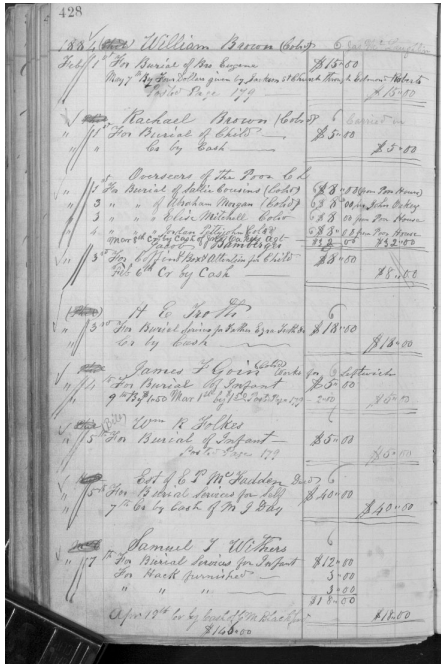 428
1884 William Brown (Cold) 6
Feb 1st For Burial of Bro Eugene $15-00
May 7th By Four Dollars given by Jackson St Church through Edmond Roberts
Posted Page 179 $15-00
Rachael Brown (Cold) 6
" 1st For Burial of Child $5-00
" " Cr by Cash $5-00
Overseers of the Poor
" 3 For Burial of Sallie Cousins (Cold) 6 $8-00 from Poor House
" 3 " " of Abraham Morgan (Cold) 6 $8-00 per John Oakey
" 3 " " of Elise Mitchell Cold 6 $8-00 from Poor House
" 4 " " Cold 6 $8-00 from Poor House
Mar 8th Cr by Cash of Agt $32-00 $32-00
Jacob Bamberger
" 3rd For Coffin & Box & Attention for Child $8-00
Feb 6th Cr by Cash $8-00
H E Trotts 6
" 3rd For Burial Services for Father Ezra $18-00
Cr by Cash $18-00
James F Goin (Cold) Works for Leftwich
" 4th For Burial of Infant $5-00
9th By $2.50 Mar 1st by Posted Page 179 $5-00
Wm R Folkes 6
" 5th For Burial of Infant $5-00
Posted Page 179 $5-00
Est of E P McFadden Decd 6
" 5th For Burial Services for Self $40-00
" 7th Cr by Cash of M J Day $40-00
Samuel T Withers 6
" 7th For Burial Services for Infant $12-00
For Hack furnished 3-00
" " " 3-00
$18-00
Apr 12th Cr by Cash of $18-00
$140-00